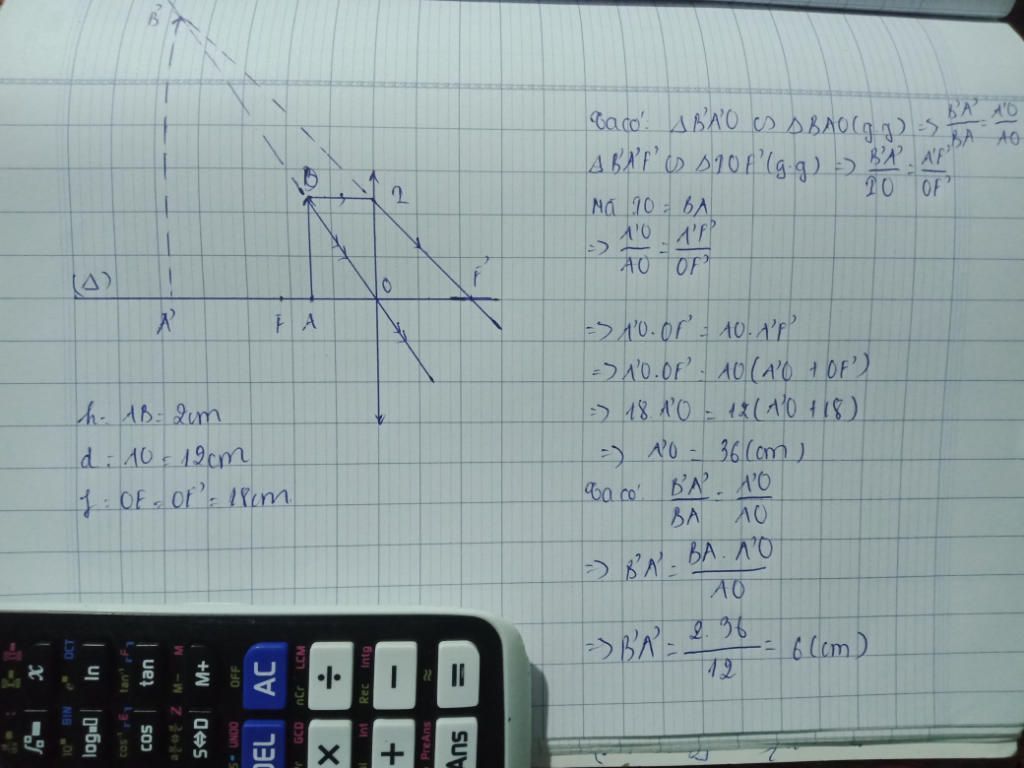 B'
B
I
(Δ)
O
F'
A'
F
A
h = AB = 2cm
d = AO = 12cm
f = OF = OF' = 18cm
Ta có: ΔB'A'O ∽ ΔBAO (g.g) => B'A'/BA = A'O/AO
ΔB'A'F' ∽ ΔIOF' (g.g) => B'A'/IO = A'F'/OF'
Mà IO = BA
=> A'O/AO = A'F'/OF'
=> A'O.OF' = AO.A'F'
=> A'O.OF' = AO(A'O + OF')
=> 18.A'O = 12(A'O + 18)
=> A'O = 36(cm)
Ta có: B'A'/BA = A'O/AO
=> B'A' = BA.A'O/AO
=> B'A' = 2.36/12 = 6(cm)
x
OCT
ln
tan
M-
M+
OFF
AC
LCM
÷
nCr
Intg
−
Rec
≈
=
BIN
log
cos
S⇔D
UNDO
DEL
GCD
×
Int
+
PreAns
Ans